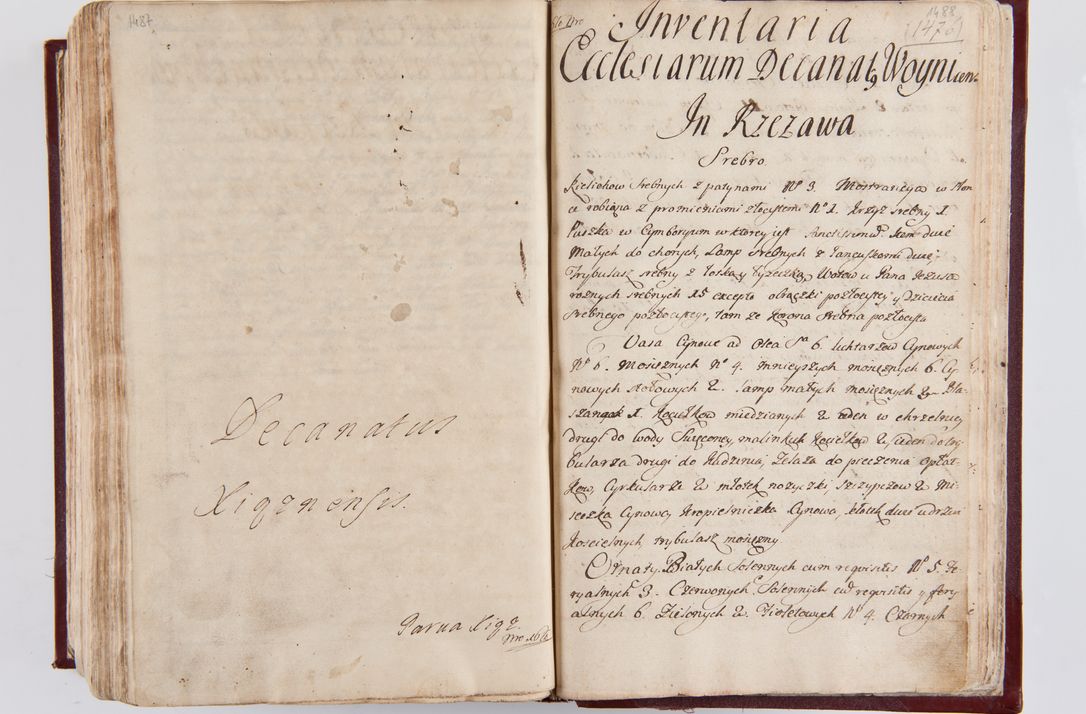 1487
Decanatus
Xiąznensis.
Parua Xiąz.
1488
(1470)
Inventaria
Ecclesiarum Decanat9 Woynicen.
In Rzezawa
Srebro.
Kielichow Srebnych z patynami Nº 3. Monstrancya w Słon
ce robiona z promieniami złocystemi Nº 1. Krzyz srebny 1.
Puszka w Cymboryum w ktorey iest Sanctissimu. Item dwie
Małych do chorych, Lamp srebnych z łancuszkami dwie,
Trybularz srebny z łotką y łyzeczką, Wotow u Pana Jezusa
roznych srebnych 15 excepto obrączki pozłocistey y Dzieciecia
Srebnego pozłocistego, tam ze korona srebna pozłocista
Vasa Cynowe ad Olea Sra 6. Lichtarzow Cynowych
Nº 6. Mosieznych Nº 4. mnieyszych mosięznych 6. Cy-
nowych stołowych 2. Lamp małych mosięznych 2.
szanych 1. Kociełkow miedzianych 2 ieden w chrzcielnicy
drugi do wody Swięconey, malinkich Kociełkow 2 ieden do try-
bularza drugi do Kadzenia, Zelaza do pieczenia opłat-
kow, Cyrkularze 2 młotek nozyczki szczypczow 2 Mi-
seczka Cynowa, Kropielniczka Cynowa, dwie u drzwi
Koscielnych, trybularz mosięzny
Ornaty Białych Solennych cum requisitis Nº 5. Fe-
ryalnych 3. Czerwonych Solennych cu requisitis y fery
alnych 6. Zielonych 2. Fioletowych Nº 4. Czarnych